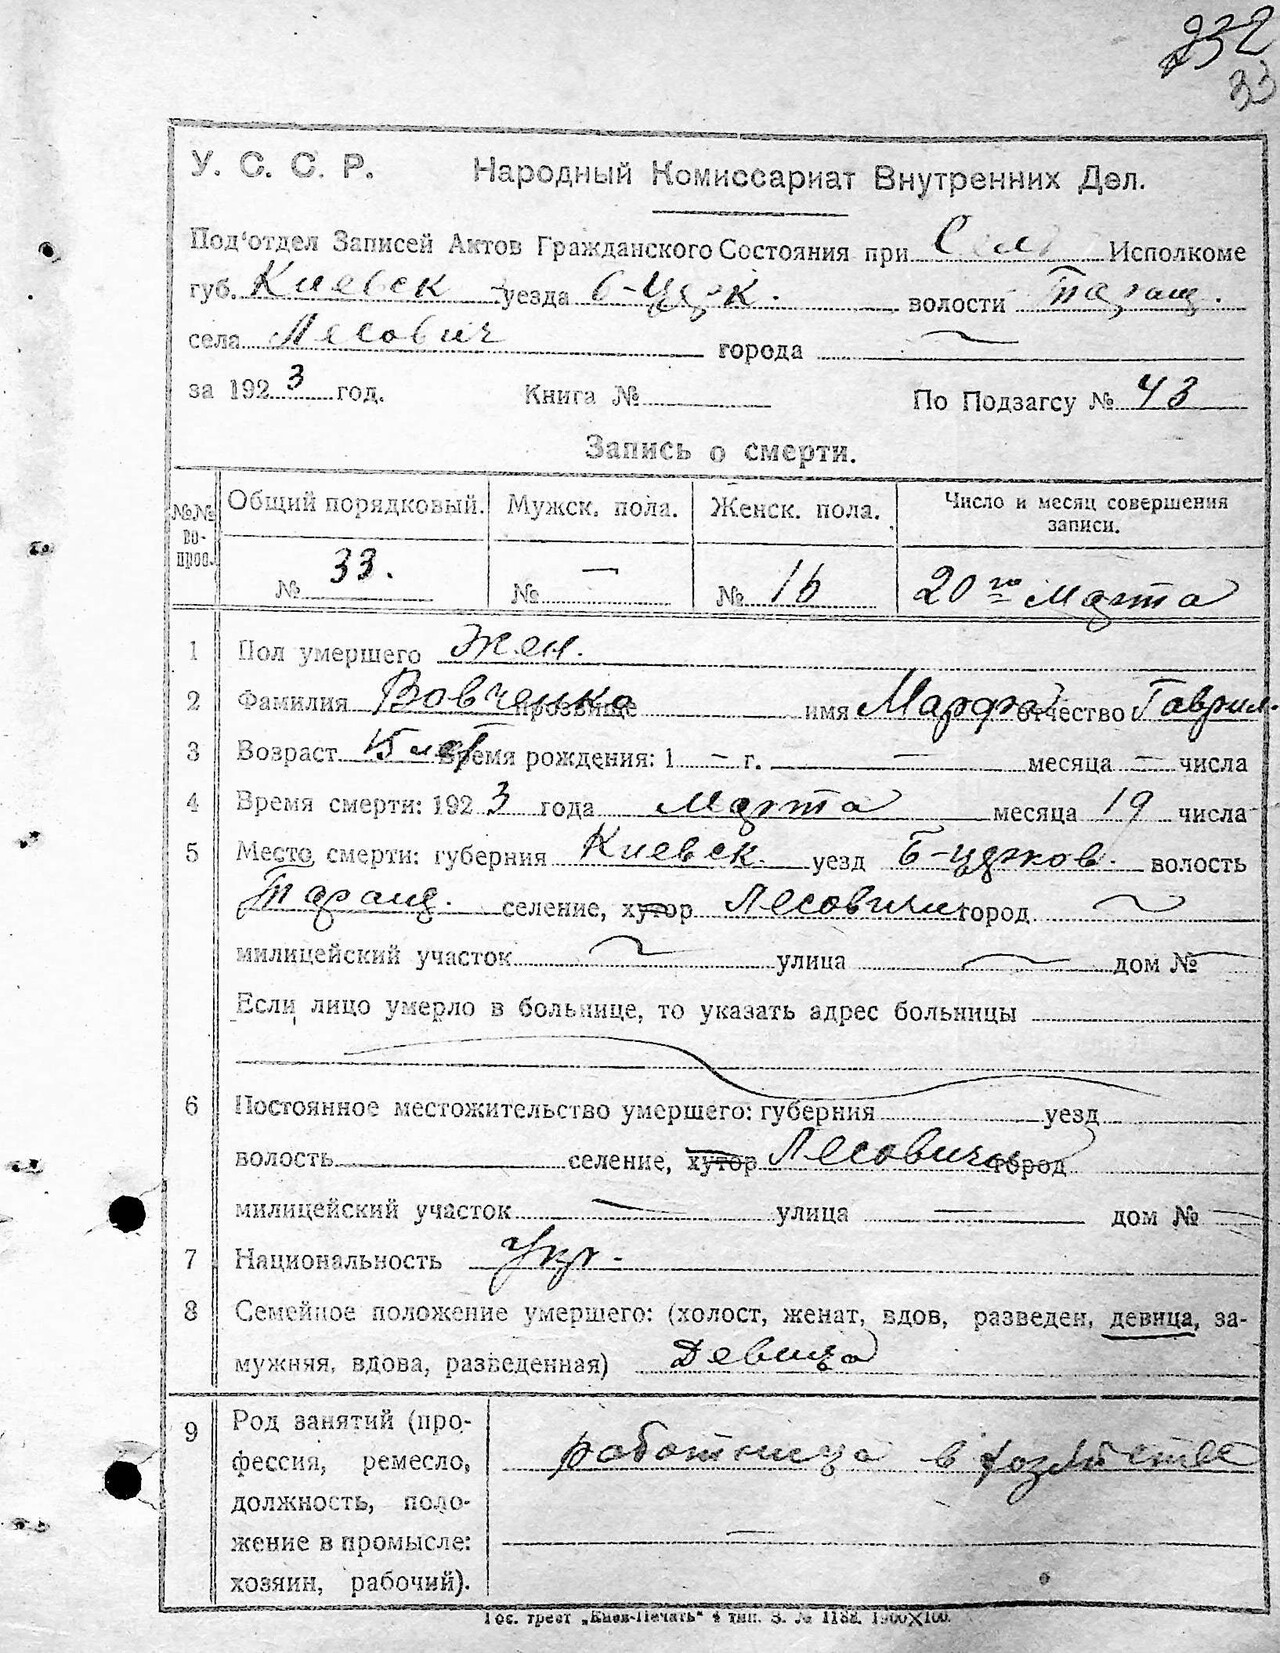 232
33
У. С. С. Р. Народный Комиссариат Внутренних Дел.
Под'отдел Записей Актов Гражданского Состояния при Сель Исполкоме
губ. Киевск уезда Б-Црк. волости Таращ.
села Лесович города
за 1923 год. Книга № По Подзагсу № 43
Запись о смерти.
№№ вопрос. Общий порядковый. Мужск. пола. Женск. пола. Число и месяц совершения записи.
№ 33. № — № 16 20го Марта
1 Пол умершего Жен.
2 Фамилия Вовченко прозвище имя Марфа отчество Гаврил.
3 Возраст 15 лет Время рождения: 1 – г. — месяца — числа
4 Время смерти: 1923 года Марта месяца 19 числа
5 Место смерти: губерния Киевск. уезд Б-церков. волость
Таращ. селение, хутор Лесовичи город
милицейский участок улица дом №
Если лицо умерло в больнице, то указать адрес больницы
6 Постоянное местожительство умершего: губерния уезд
волость селение, хутор Лесовичи город
милицейский участок — улица — дом №
7 Национальность Укр.
8 Семейное положение умершего: (холост, женат, вдов, разведен, девица, за-
мужняя, вдова, разведенная) Девица
9 Род занятий (про-
фессия, ремесло, работница в хозяйстве
должность, поло-
жение в промысле: —
хозяин, рабочий).
Гос. трест „Киев-Печать" 4 тип. З. № 1188. 1900×100.